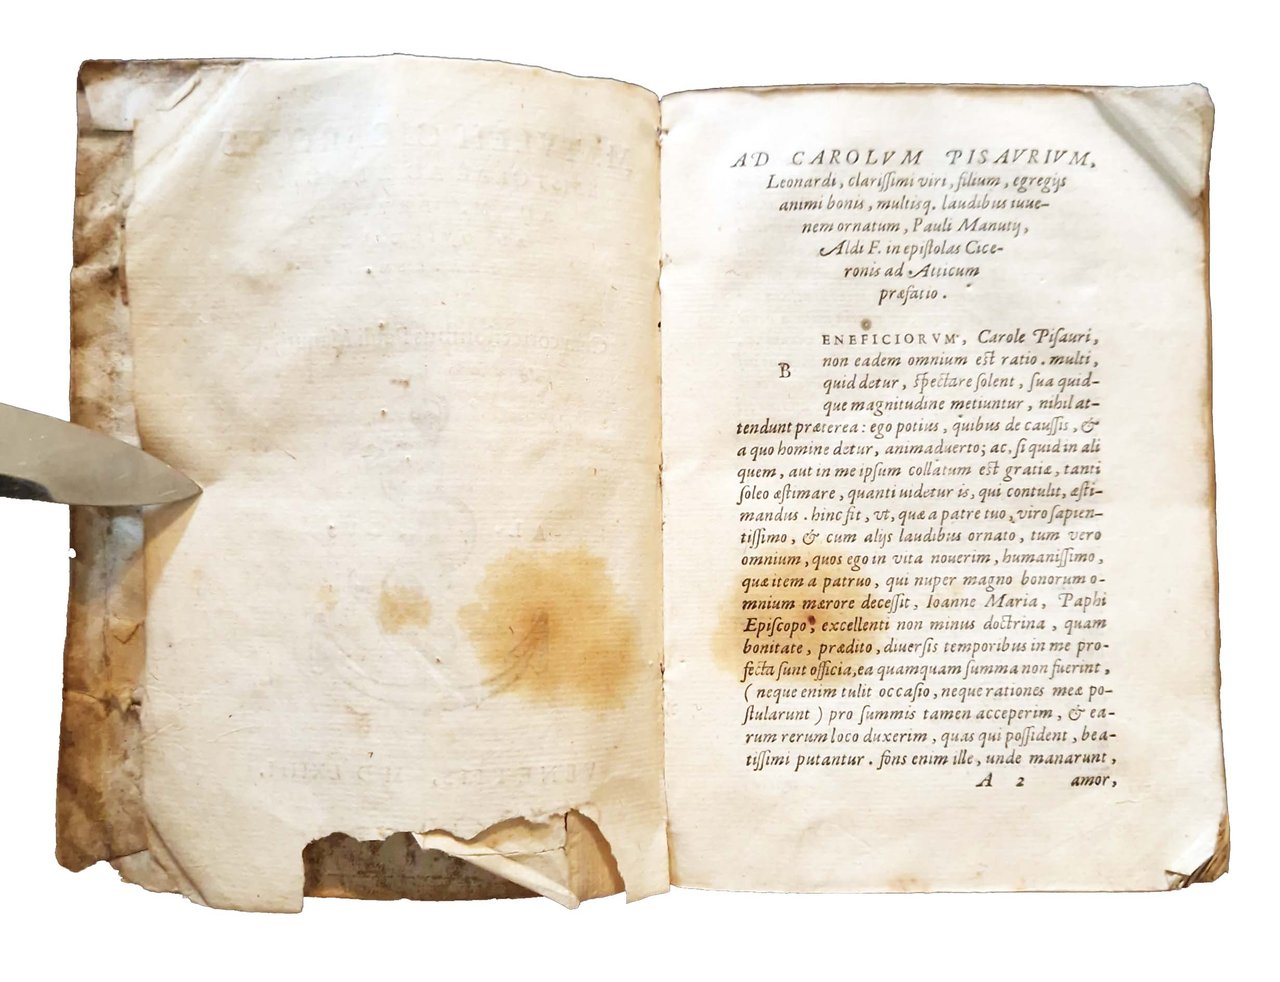 AD CAROLVM PISAVRIVM,
Leonardi, clarissimi viri, filium, egregijs
animi bonis, multisq. laudibus iuue-
nem ornatum, Pauli Manutij,
Aldi F. in epistolas Cice-
ronis ad Atticum
præfatio.
BENEFICIORVM, Carole Pisauri,
non eadem omnium est ratio. multi,
quid detur, spectare solent, sua quid-
que magnitudine metiuntur, nihil at-
tendunt præterea: ego potius, quibus de caussis, &
a quo homine detur, animaduerto; ac, si quid in ali
quem, aut in me ipsum collatum est gratiæ, tanti
soleo æstimare, quanti uidetur is, qui contulit, æsti-
mandus. hinc fit, vt, quæ a patre tuo, viro sapien-
tissimo, & cum alijs laudibus ornato, tum vero
omnium, quos ego in vita nouerim, humanissimo,
quæ item a patruo, qui nuper magno bonorum o-
mnium mærore decessit, Ioanne Maria, Paphi
Episcopo, excellenti non minus doctrina, quam
bonitate, prædito, diuersis temporibus in me pro-
fecta sunt officia, ea quamquam summa non fuerint,
(neque enim tulit occasio, neque rationes meæ po-
stularunt) pro summis tamen acceperim, & ea-
rum rerum loco duxerim, quas qui possident, bea-
tissimi putantur. fons enim ille, unde manarunt,
A 2 amor,